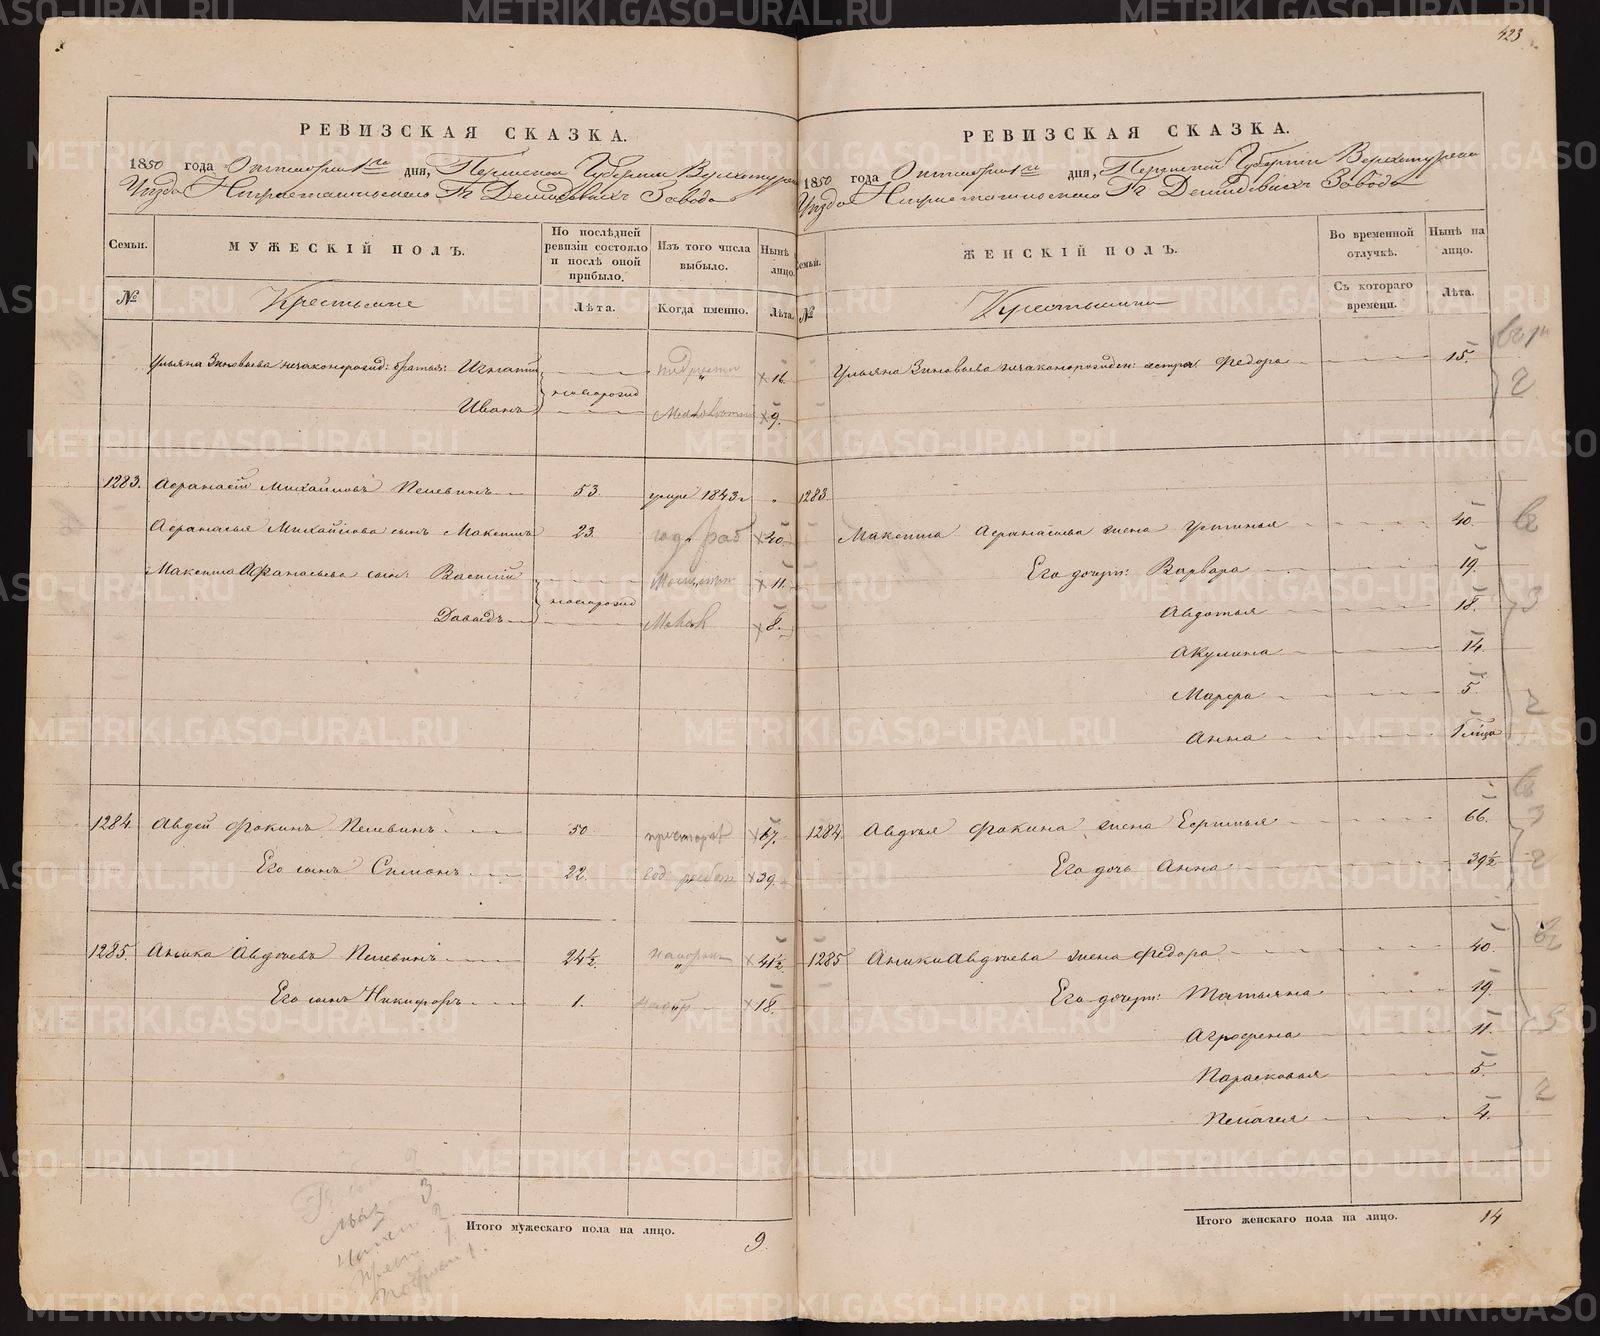 423
РЕВИЗСКАЯ СКАЗКА.
1850 года Октября 1го дня, Пермской Губернии Верхотурска
Уѣзда Нижнетагильскаго Гг Демидовыхъ Завода
Семьи.
МУЖЕСКІЙ ПОЛЪ.
По послѣдней ревизіи состояло и послѣ оной прибыло.
Изъ того числа выбыло.
Нынѣ лицо.
№
Крестьяне
Лѣта.
Когда именно.
Лѣта.
Ульяна Зиновьева незаконорожд: братья: Игнатій новорожд 16.
Иванъ 9.
1283. Афанасій Михайловъ Пелевинъ 53. умре 1843 г
Афанасья Михайлова сынъ Максимъ 23. год. раб 40
Максима Афанасьева сын: Василій новорожд 11.
Давыдъ 8.
1284. Авдей Фокинъ Пелевинъ 50 престарѣ 67.
Его сынъ Симонъ 22. год работ 39
1285. Аника Авдѣевъ Пелевинъ 24½. 41½
Его сынъ Никифоръ 1. 18.
Итого мужескаго пола на лицо. 9.
3
2
1
1.
РЕВИЗСКАЯ СКАЗКА.
1850 года Октября 1го дня, Пермской Губерніи Верхотурска
Уѣзда Нижнетагильскаго Гг Демидовыхъ Завода
Семьи.
ЖЕНСКІЙ ПОЛЪ.
Во временной отлучкѣ.
Нынѣ на лицо.
№
Крестьянки
Съ котораго времени.
Лѣта.
Ульяна Зиновьева незаконорожден: сестра: Федора 15.
1283
Максима Афанасьева жена Устинья 40.
Его дочери: Варвара 19.
Авдотья 18.
Акулина 14.
Марфа 5.
Анна 1 мѣсяц
1284. Авдѣя Фокина жена 66.
Его дочь Анна 39½
1285 Аники Авдѣева жена Федора 40.
Его дочери: Татьяна 19.
Агрофена 11.
Парасковья 5.
Пелагея 4.
Итого женскаго пола на лицо. 14
METRIKI.GASO-URAL.RU